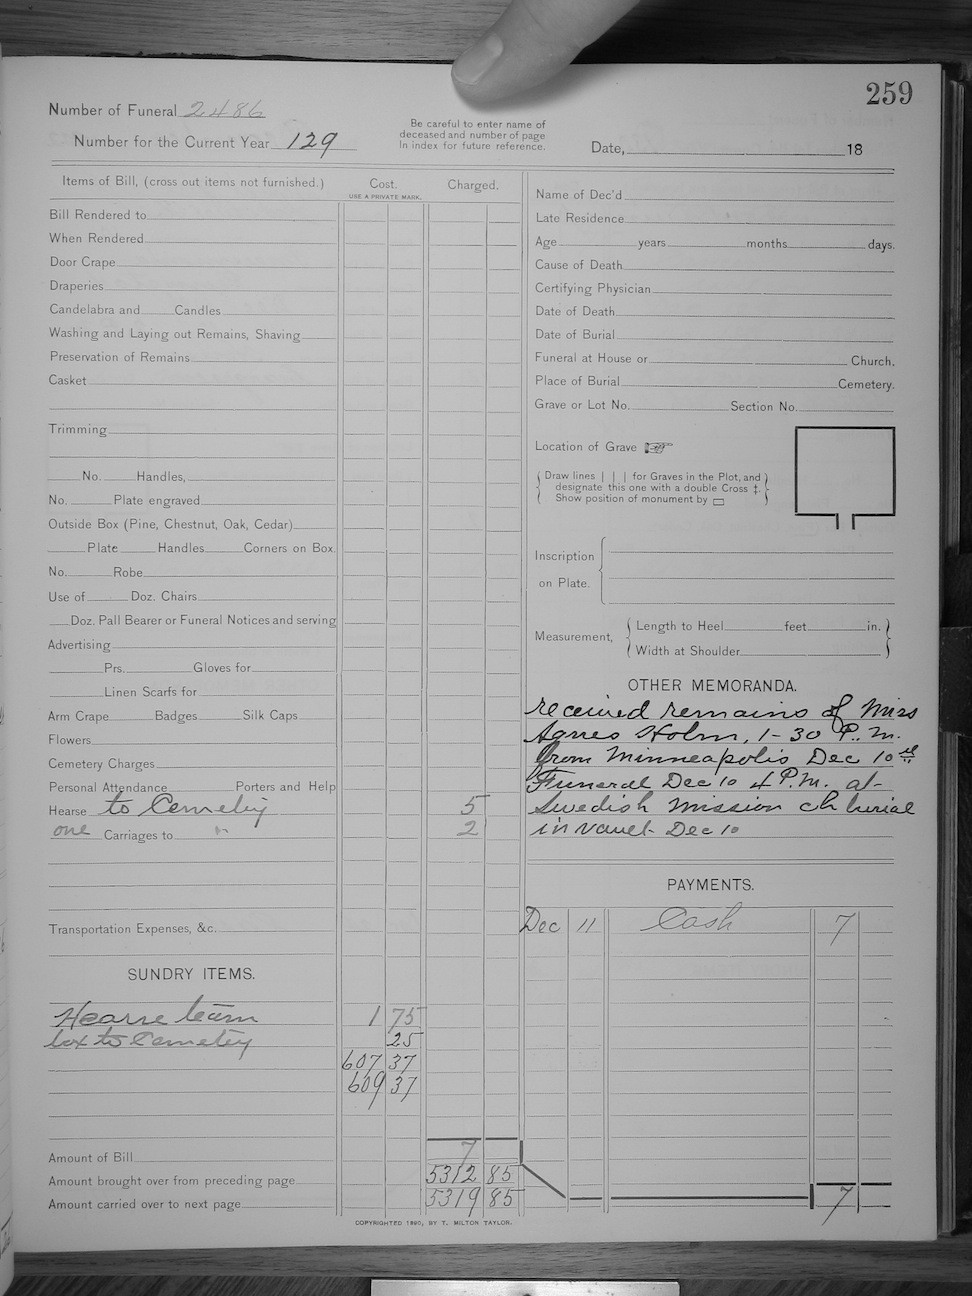 259
Number of Funeral 2486
Number for the Current Year 129
Be careful to enter name of
deceased and number of page
In index for future reference.
Date, 18
Items of Bill, (cross out items not furnished.) Cost. Charged.
USE A PRIVATE MARK.
Bill Rendered to
When Rendered
Door Crape
Draperies
Candelabra and Candles
Washing and Laying out Remains, Shaving
Preservation of Remains
Casket
Trimming
No. Handles,
No. Plate engraved
Outside Box (Pine, Chestnut, Oak, Cedar)
Plate Handles Corners on Box.
No. Robe
Use of Doz. Chairs
Doz. Pall Bearer or Funeral Notices and serving
Advertising
Prs. Gloves for
Linen Scarfs for
Arm Crape Badges Silk Caps
Flowers
Cemetery Charges
Personal Attendance Porters and Help
Hearse to Cemetery 5
one Carriages to " 2
Transportation Expenses, &c.
SUNDRY ITEMS.
Hearse team 1 75
box to Cemetery 25
607 37
609 37
Amount of Bill 7
Amount brought over from preceding page 5312 85
Amount carried over to next page 5319 85
Name of Dec'd
Late Residence
Age years months days.
Cause of Death
Certifying Physician
Date of Death
Date of Burial
Funeral at House or Church.
Place of Burial Cemetery.
Grave or Lot No. Section No.
Location of Grave ☞
Draw lines | | | for Graves in the Plot, and
designate this one with a double Cross ‡.
Show position of monument by ▭
Inscription
on Plate.
Measurement, Length to Heel feet in.
Width at Shoulder
OTHER MEMORANDA.
received remains of Miss
Agnes Holm, 1-30 P.M.
from Minneapolis Dec 10th
Funeral Dec 10 4 P.M. at
Swedish Mission ch burial
in vault Dec 10
PAYMENTS.
Dec 11 Cash 7
7
COPYRIGHTED 1890, BY T. MILTON TAYLOR.